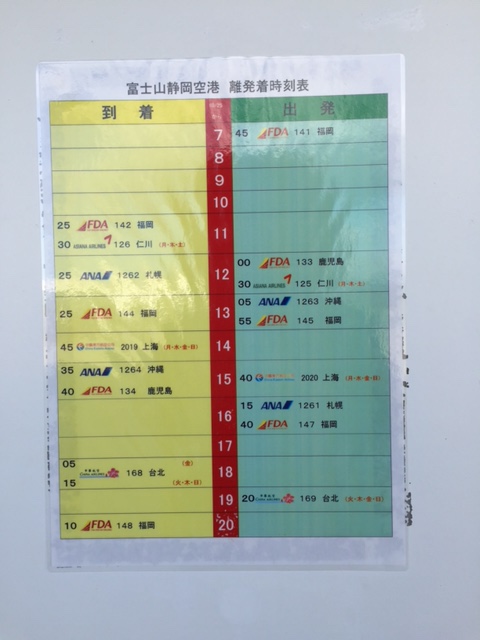 富士山静岡空港 離発着時刻表
到着 出発
7 45 FDA 141 福岡
8
9
10
25 FDA 142 福岡 11
30 ASIANA AIRLINES 126 仁川 (月・木・土)
12 00 FDA 133 鹿児島
25 ANA 1262 札幌 30 ASIANA AIRLINES 125 仁川 (月・木・土)
13 05 ANA 1263 沖縄
25 FDA 144 福岡 55 FDA 145 福岡
45 2019 上海 (月・木・金・日) 14
35 ANA 1264 沖縄 15 40 2020 上海 (月・木・金・日)
40 FDA 134 鹿児島
16 15 ANA 1261 札幌
40 FDA 147 福岡
17
05 (金)
CHINA AIRLINES 168 台北 18
15 (火・木・日)
19 20 CHINA AIRLINES 169 台北 (火・木・金・日)
10 FDA 148 福岡 20